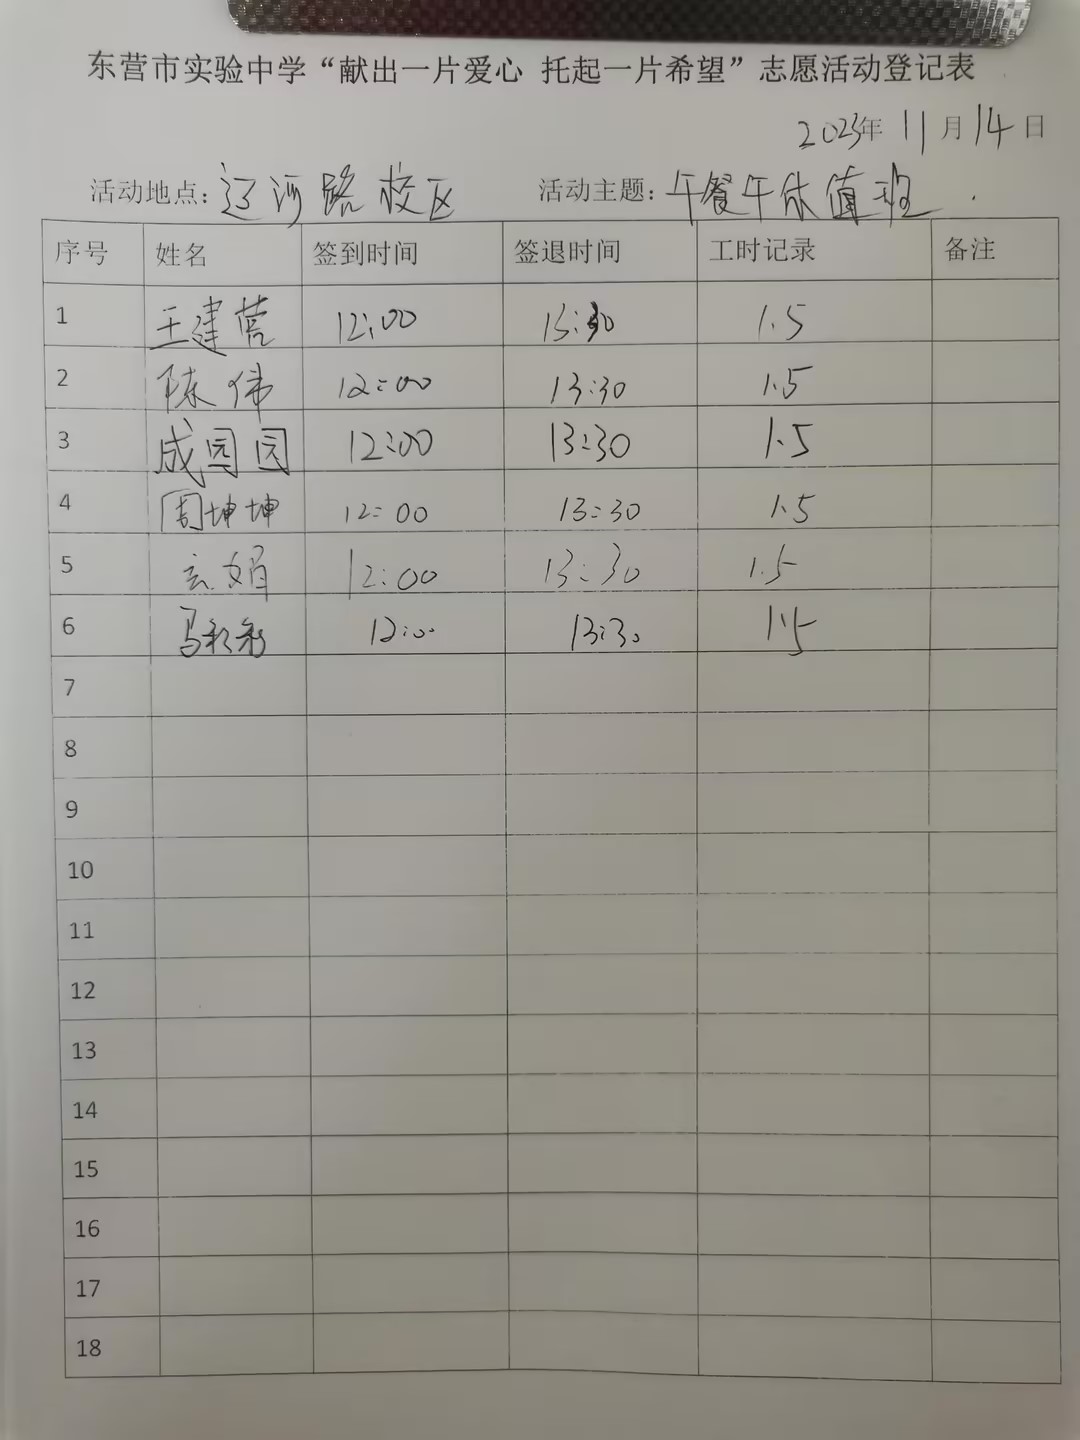 东营市实验中学“献出一片爱心 托起一片希望”志愿活动登记表
2023年 11月14日
活动地点：辽河路校区 活动主题：午餐午休值班.
序号 姓名 签到时间 签退时间 工时记录 备注
1 王建营 12:00 13:30 1.5
2 陈伟 12:00 13:30 1.5
3 成园园 12:00 13:30 1.5
4 周坤坤 12:00 13:30 1.5
5 云娟 12:00 13:30 1.5
6 马彩彩 12:00 13:30 1.5
7
8
9
10
11
12
13
14
15
16
17
18